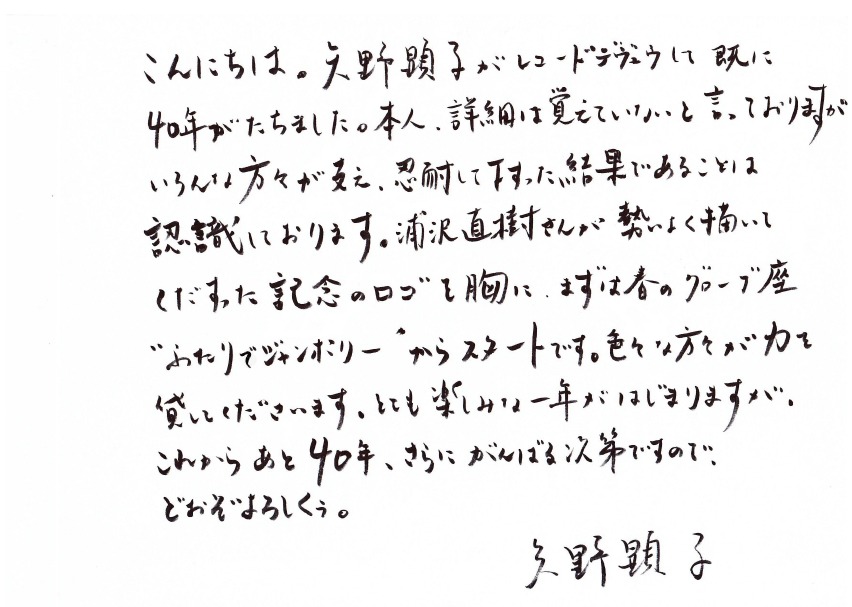 こんにちは。矢野顕子がレコードデヴュウして既に
40年がたちました。本人、詳細は覚えていないと言っておりますが
いろんな方々が支え、忍耐して下すった結果であることは
認識しております。浦沢直樹さんが勢いよく描いて
くだすった記念のロゴを胸に、まずは春のグローブ座
“ふたりでジャンボリー”からスタートです。色々な方々が力を
貸してくださいます。とても楽しみな一年がはじまりますが、
これからあと40年、さらにがんばる次第ですので、
どおぞよろしくぅ。
矢野顕子